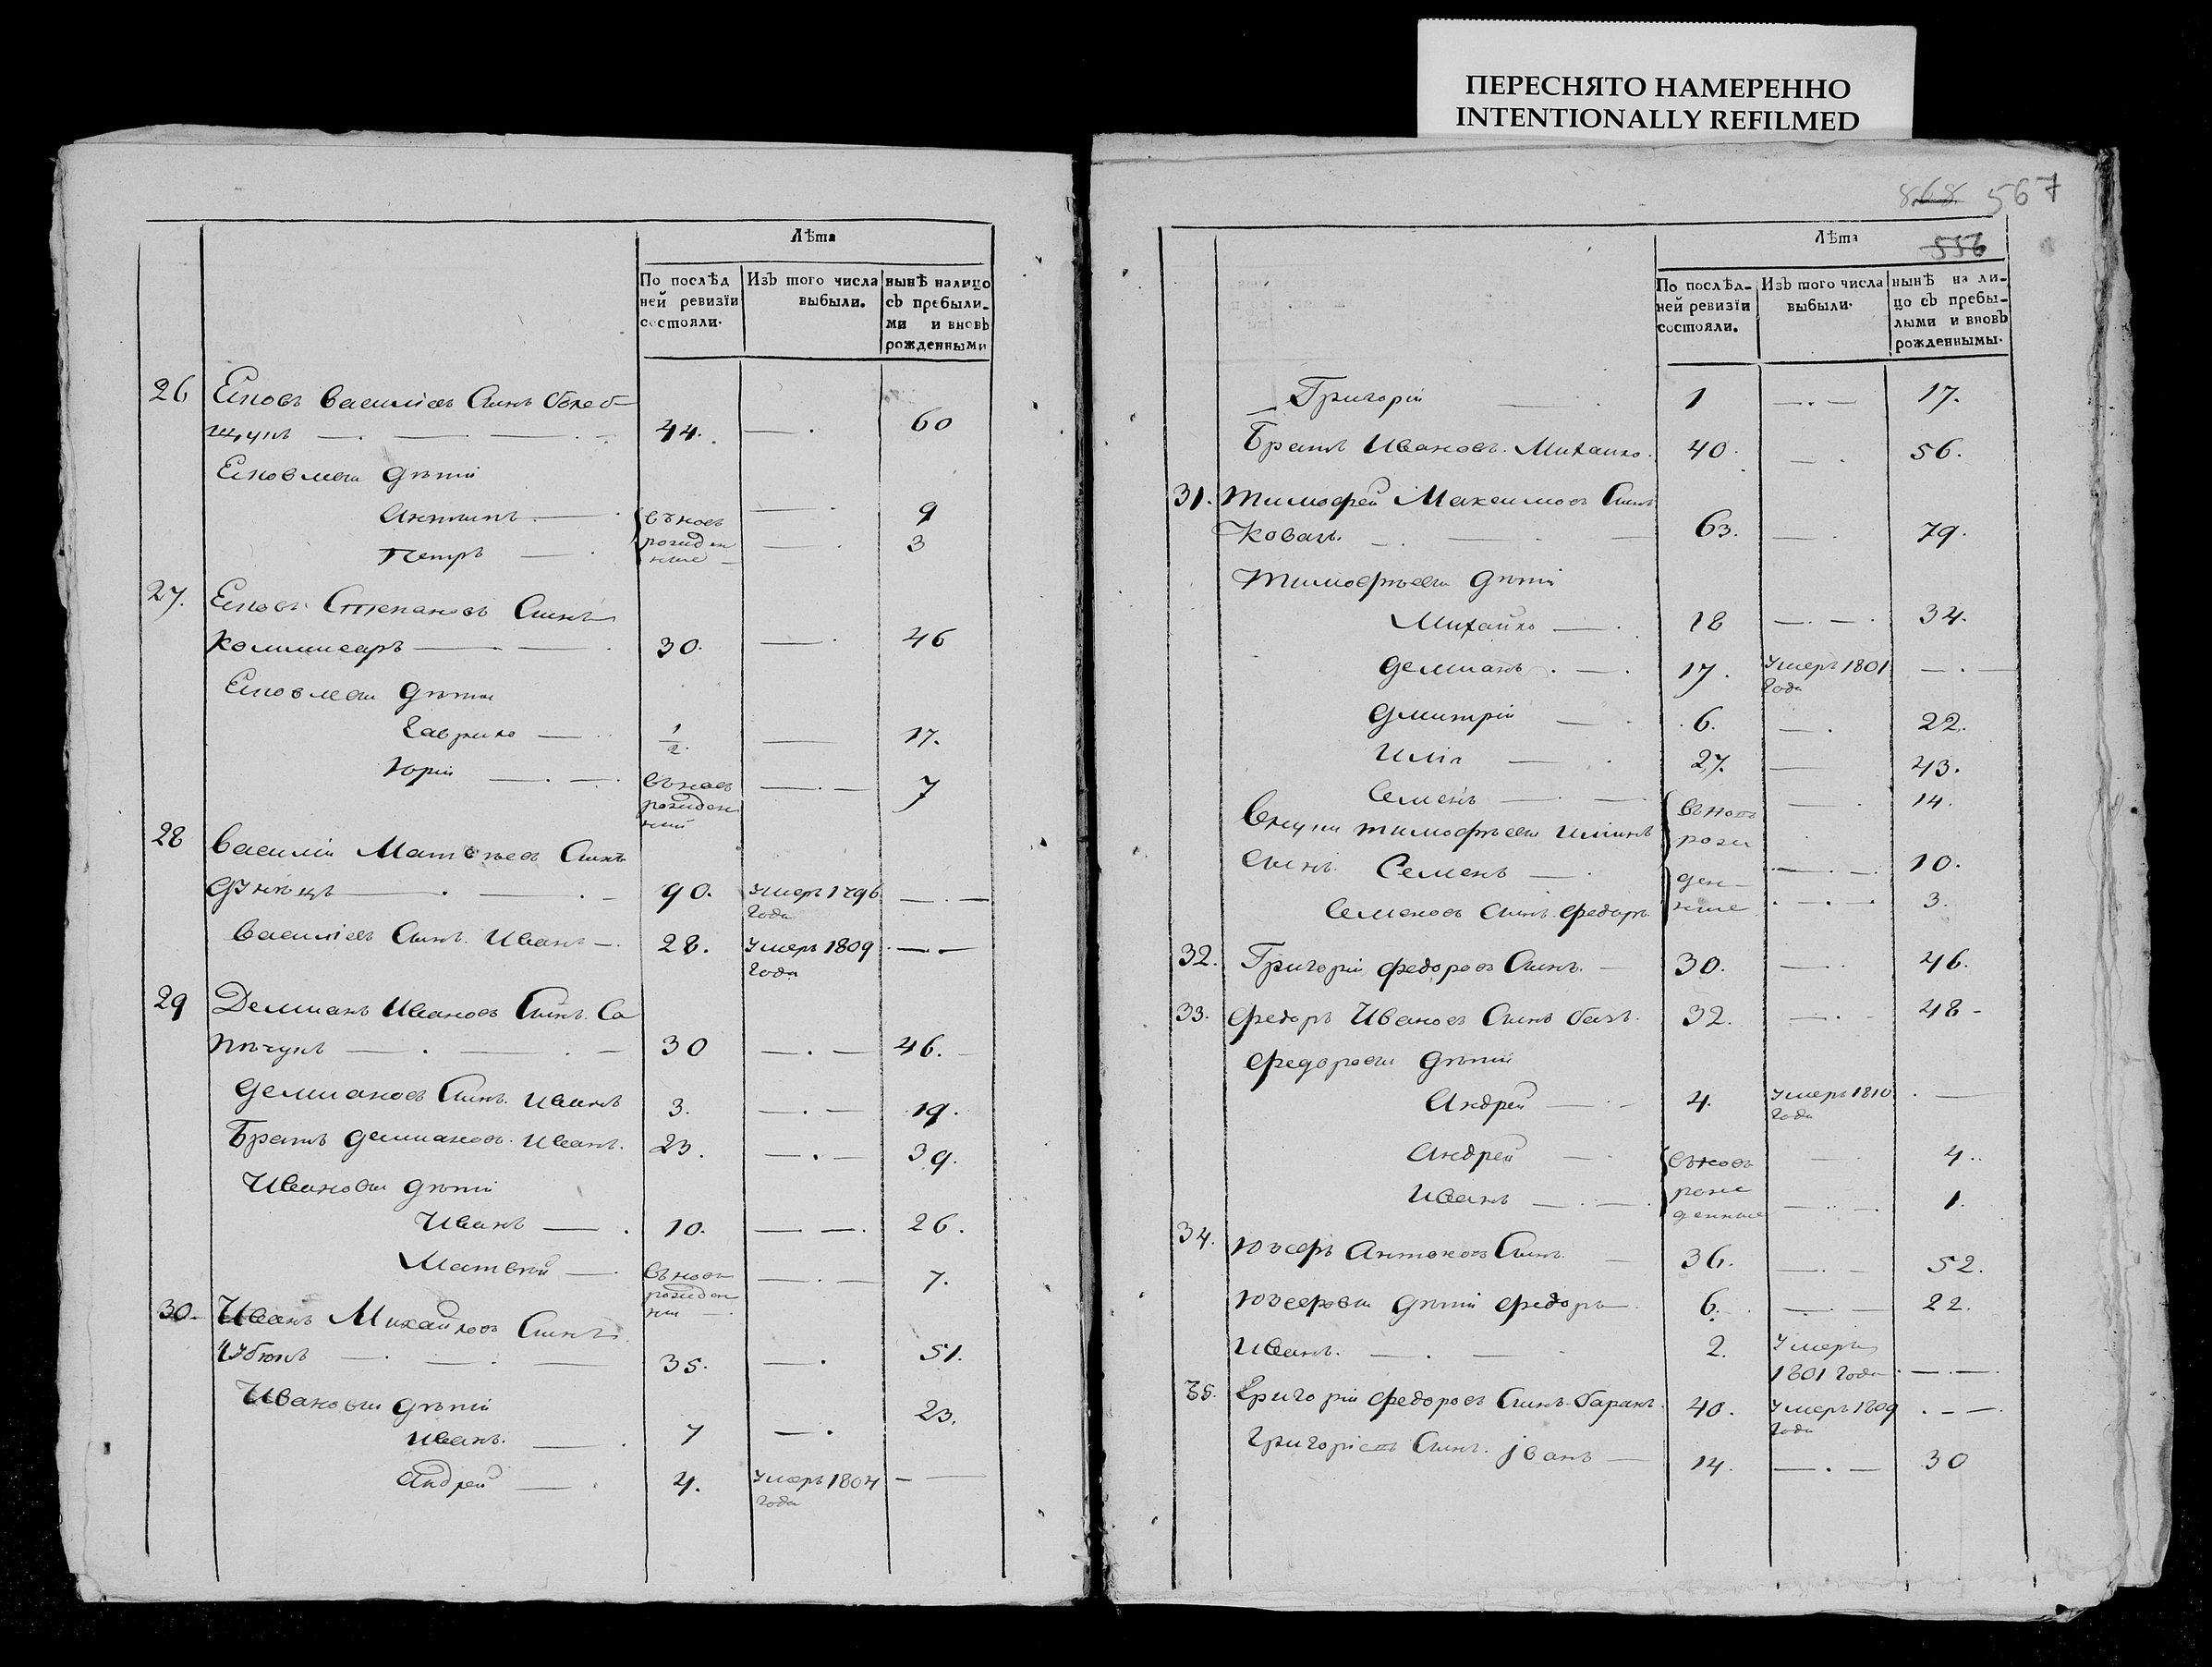 ПЕРЕСНЯТО НАМЕРЕННО
INTENTIONALLY REFILMED
Лѣта
По послѣд
ней ревизїи
состояли.
Изъ того числа
выбыли.
нынѣ налицо
съ пребыли-
ми и вновь
рожденными
26
44. 60
Антипъ 9
Петръ 3
27. Степановъ Синъ
Коммисаръ 30. 46
Гаврило 1/2. 17.
Юрій 7
28 Василій Матвѣевъ Синъ
90. Умеръ 1796
Года
Василіевъ Синъ Иванъ 28. Умеръ 1809
Года
29 Демианъ Ивановъ Синъ Са
30 46.
Демиановъ Синъ Иванъ 3. 19.
Братъ Демиановъ Иванъ. 23. 39.
Ивановы дѣтіи
Иванъ 10. 26.
Матвѣй 7.
30. Иванъ Михайловъ Синъ
35. 51.
Ивановы дѣтіи
Иванъ. 7 23.
Андрей 4. Умеръ 1804
Года
868 567
Лѣта
556
По послѣд-
ней ревизїи
состояли.
Изъ того числа
выбыли.
нынѣ на ли-
цо съ пребы-
лыми и вновь
рожденнымы.
Григорій 1 17.
Братъ Ивановъ. Михайло. 40. 56.
31. Тимофей Максимовъ Синъ
Коваль. 63. 79.
Тимофѣевы дѣтіи
Михайло 18 34.
Демианъ 17. Умеръ 1801
Года
Дмитрій 6. 22.
Иліа 27. 43.
Семенъ 14.
Внуки Тимофѣевы Илиинъ
Синъ. Семенъ 10.
Семеновъ Синъ. Федоръ. 3.
32. Григорій Федоровъ Синъ. 30. 46.
33. Федоръ Ивановъ Синъ 32. 48
Федоровы дѣтіи
Андрей 4. Умеръ 1810
Года
Андрей 4.
Иванъ 1.
34. Юзефъ Антоновъ Синъ 36. 52.
Юзефовы дѣтіи Федоръ 6. 22.
Иванъ. 2. Умеръ
1801 Года
35. Григорій Федоровъ Синъ Баранъ. 40. Умеръ 1809
Года
Григоріевъ Синъ. Јванъ 14. 30